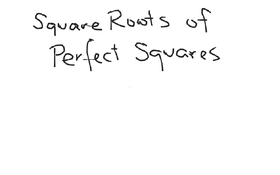 Square Roots of
Perfect Squares